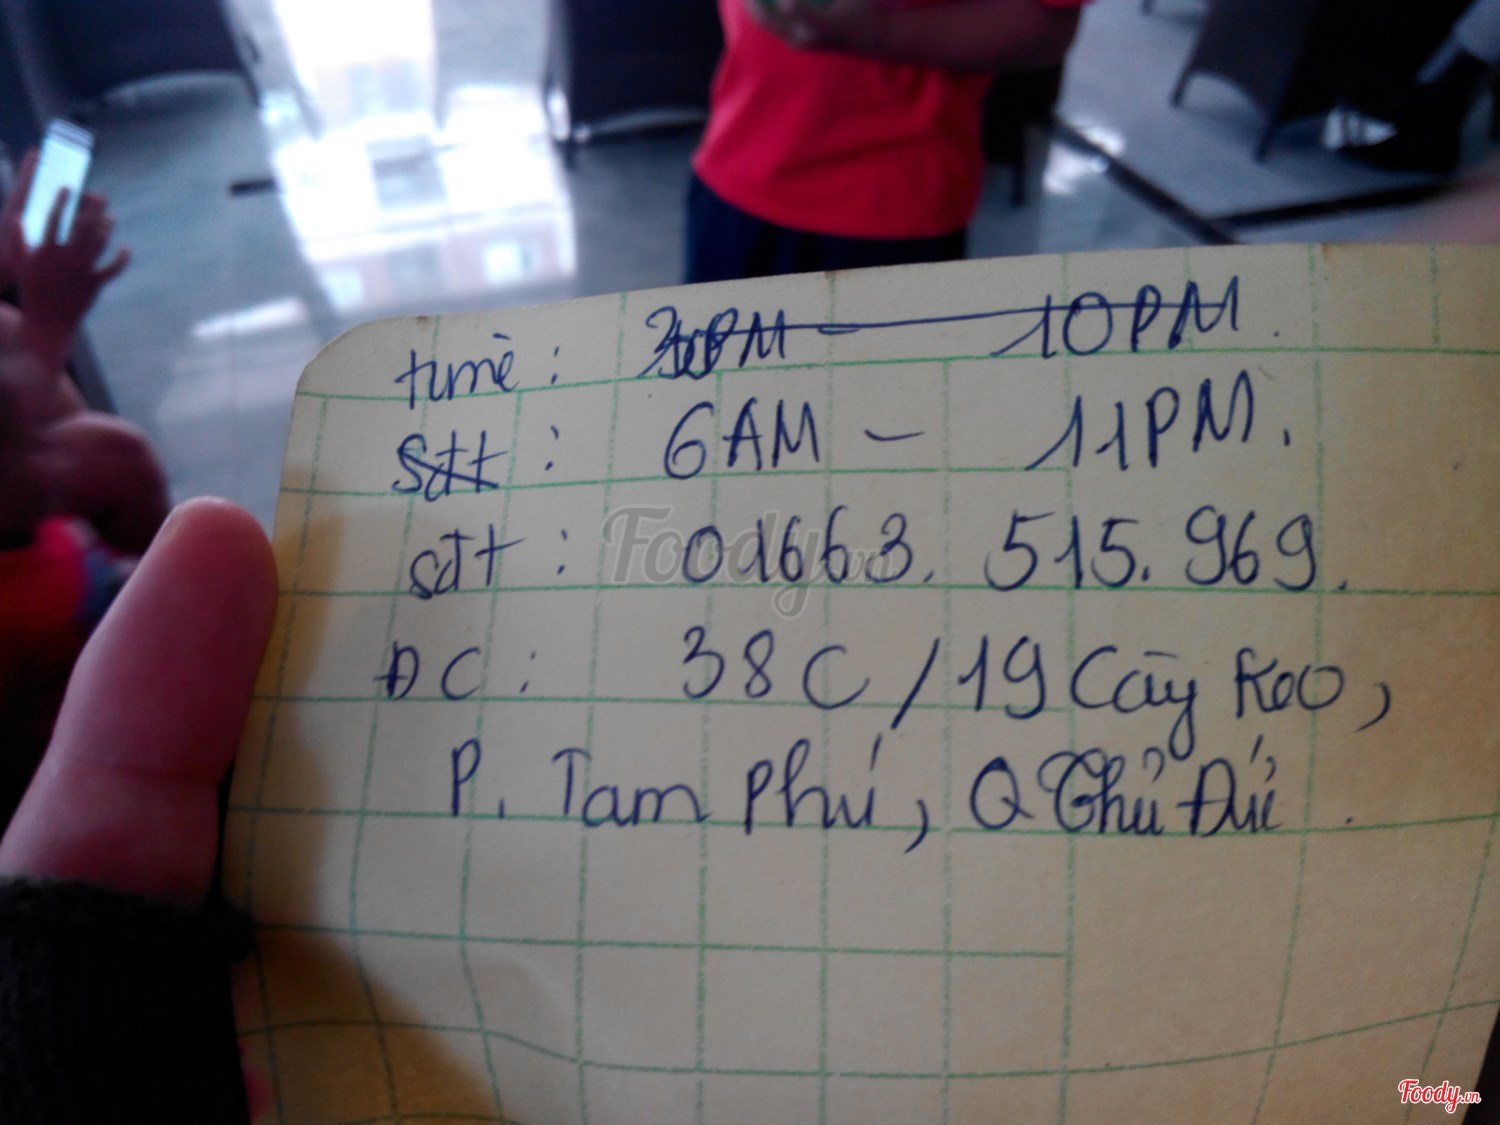 time : 3PM - 10PM.
sđt : 6AM - 11PM.
sđt : 01663. 515. 969.
ĐC : 38C / 19 Cây Keo,
P. Tam Phú, Q Thủ Đức.
Foody.vn
Foody.vn